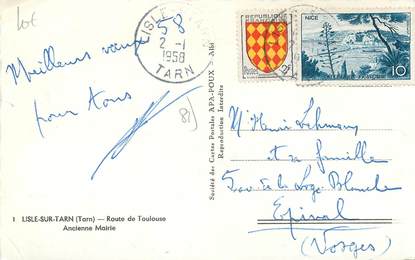 lot
Meilleurs vœux 58
pour tous
LISLE
2 -1
1958
TARN
81
RÉPUBLIQUE
NICE
10
Société des Cartes Postales APA-POUX - Albi
Reproduction Interdite
Mr Henri Lehmann
et sa famille
5 av de la Loge Blanche
Epinal
(Vosges)
1 LISLE-SUR-TARN (Tarn) — Route de Toulouse
Ancienne Mairie